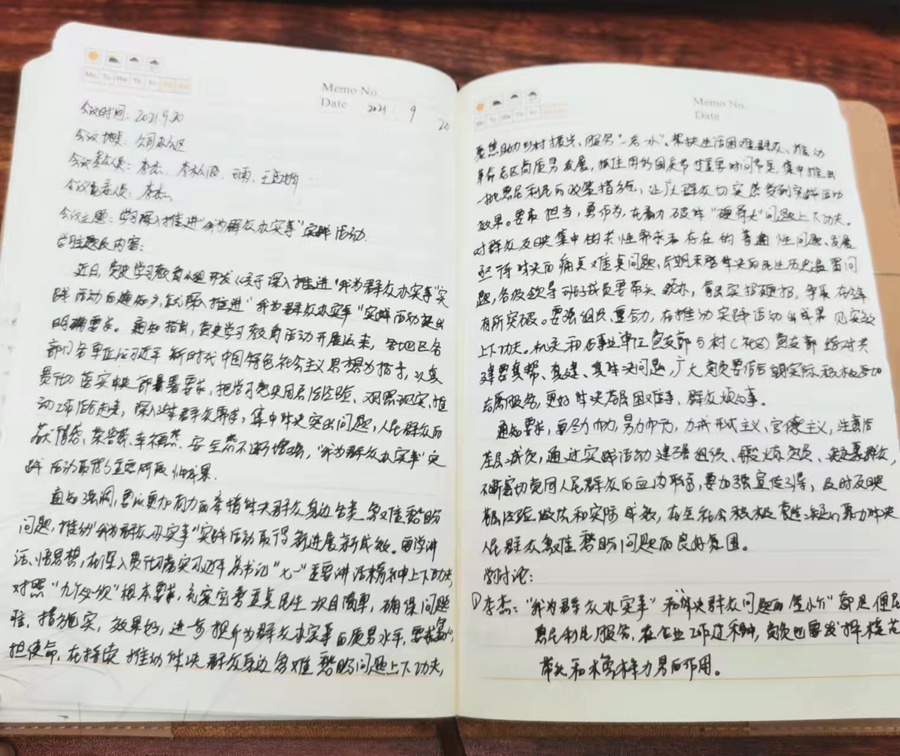 Mo. Tu. We. Th. Fr.
Memo No.
Date 2021 . 9 20
会议时间：2021.9.20
会议地点：公司办公区
会议参会人员：李杰、
会议负责人：李杰
会议主题：学习深入推进“我为群众办实事”实践活动
学习主题及内容：
近日，党史学习教育领导小组印发《关于深入推进“我为群众办实事”实
践活动的通知》，就深入推进“我为群众办实事”实践活动提出
明确要求。通知指出，党史学习教育活动开展以来，各地区各
部门各单位以习近平新时代中国特色社会主义思想为指导，认真
贯彻落实中央部署要求，把学习党史同总结经验、观照现实、推
动工作结合起来，深入基层群众，集中解决突出问题，人民群众的
获得感、幸福感、安全感不断增强，“我为群众办实事”实
践活动取得了重要阶段性成果。
通知强调，要以更加有力的举措解决群众身边的急难愁盼
问题，推动“我为群众办实事”实践活动取得新进展新成效。要学讲
话、悟思想，在深入贯彻落实习近平总书记“七一”重要讲话精神上下功夫，
对照“九个必须”根本要求，充实完善重点民生项目清单，确保问题
准、措施实、效果好，进一步提升为群众办实事的质量水平，要
担使命，在持续推动解决群众身边急难愁盼问题上下功夫，
Memo No.
Date
聚焦助力乡村振兴、服务“一老一小”、帮扶生活困难群众、推动
革命老区高质量发展，抓住用好国庆节、重要时间节点，集中推出
一批惠民利民的政策措施，让广大群众切实感受到实践活动
效果。要敢担当，勇作为，在着力破解“硬骨头”问题上下功夫。
对群众反映集中的共性需求和存在的普遍性问题、发展
亟待解决的痛点难点问题、长期未能解决的民生历史遗留问
题，各级领导班子成员要带头领办，真抓实招硬招，争取在今年
有所突破。要强组织、重合力，在推动实践活动出成果见实效
上下功夫。机关和企事业单位党支部与村（社区）党支部结对共
建要真帮、真建、真解决问题，广大党员要结合自身实际，积极参加
志愿服务，更好解决居民困难事、群众烦心事。
通知要求，要尽力而为、量力而行，力戒形式主义、官僚主义，注重为
基层减负，通过实践活动建强组织、锻炼党员、凝聚群众，
不断密切党同人民群众的血肉联系，要加强宣传引导，及时反映
经验做法和实际成效，在全社会积极营造凝心聚力解决
人民群众急难愁盼问题的良好氛围。
学习讨论：
①李杰：“我为群众办实事”和“解决群众问题的金小介”都是便民
惠民利民服务，在企业工作过程中，党员也要发挥模范
带头和榜样力量的作用。